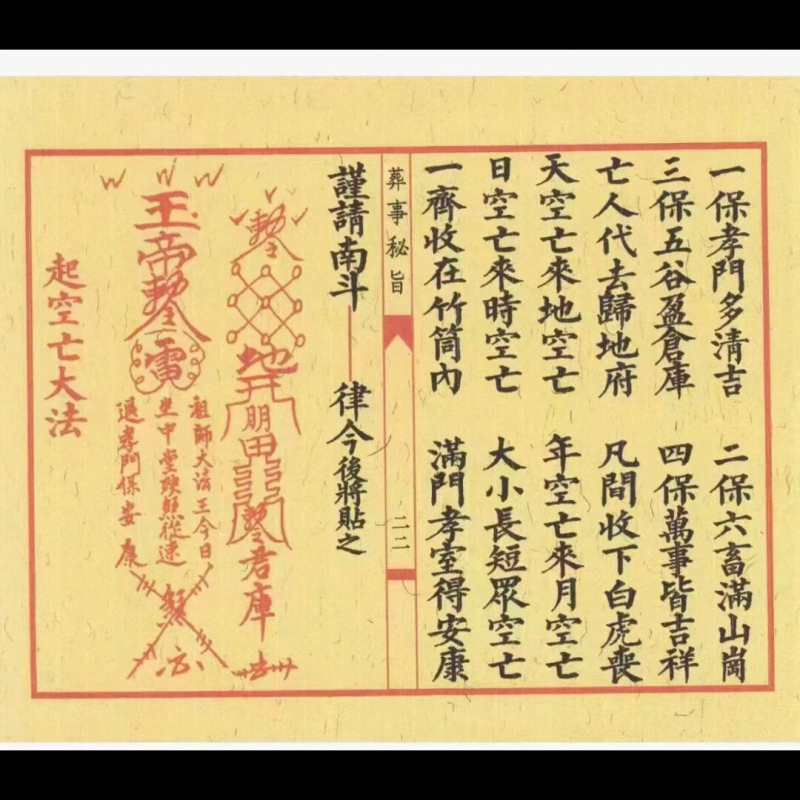 一保孝門多清吉 二保六畜滿山崗
三保五谷盈倉庫 四保萬事皆吉祥
亡人代去歸地府 凡間收下白虎喪
天空亡來地空亡 年空亡來月空亡
日空亡來時空亡 大小長短眾空亡
一齊收在竹筒內 滿門孝室得安康
葬事秘旨 二二
謹請南斗 律令後將貼之
地
庫
玉帝
雷
祖師大法王今日
坐中堂
退孝門保安康
起空亡大法